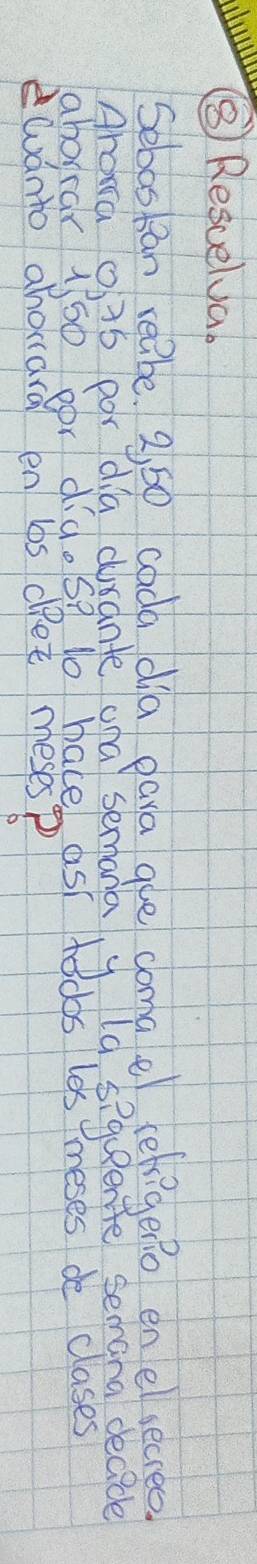 ⑧ Resuelva.
Sebastian recibe. 2,50 cada día para que coma el refrigerio en el recreo.
Ahorra 0,75 por día durante una semana y la siguiente semana decide
ahorrar 1,50 por día. Si lo hace así todos los meses de clases
¿Cuánto ahorrará en los diez meses?